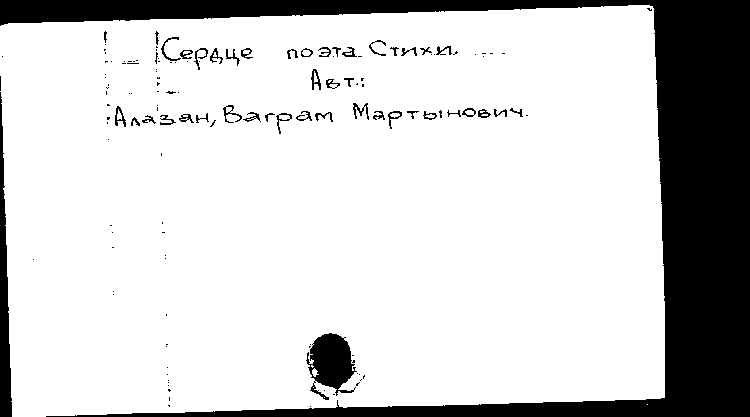 Сердце поэта. Стихи. ....
Авт.:
Алазан, Ваграм Мартынович.